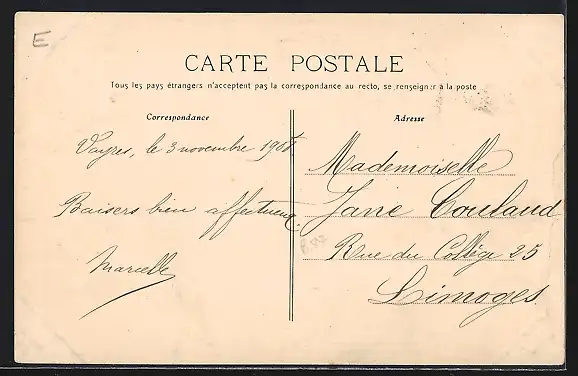 E
CARTE POSTALE
Tous les pays étrangers n'acceptent pas la correspondance au recto, se renseigner à la poste
Correspondance
Adresse
Vayres, le 3 novembre
Baisers bien affectueux.
Marcelle
Mademoiselle
Jane Coulaud
Rue du Collège 25
Limoges